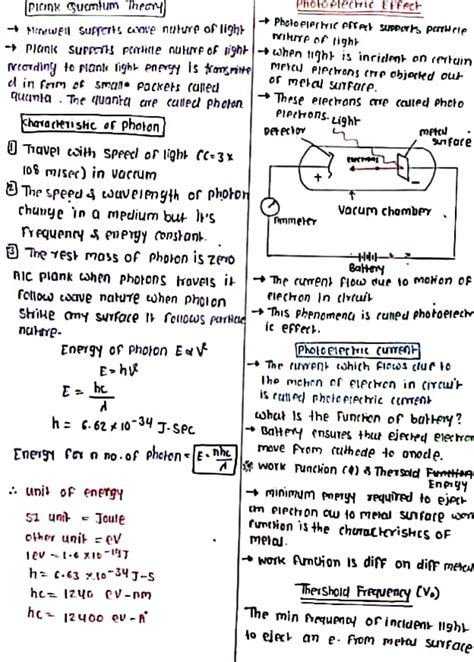 Plank Quantum Theory
→ Maxwell supports wave nature of light
→ Plank supports particle nature of light
According to Plank light energy is transmitte
d in form of small packets called
quanta. The quanta are called photon
Characteristic of photon
① Travel with speed of light (C=3×
10⁸ m/sec) in vaccum
② The speed & wavelength of photon
change in a medium but it's
frequency & energy constant.
③ The rest mass of photon is zero
NIC Plank when photons travels it
follow wave nature when photon
strike any surface it follows particle
nature.
Energy of Photon E ∝ ν
E = hν
E = hc/λ
h = 6.62 × 10⁻³⁴ J-sec
Energy for n no. of photon = E = nhc/λ
∴ unit of energy
SI unit = Joule
other unit = eV
1eV = 1.6 × 10⁻¹⁹ J
h = 6.63 × 10⁻³⁴ J-S
hc = 1240 eV-nm
hc = 12400 eV-A°
Photoelectric Effect
→ Photoelectric effect supports particle
nature of light
→ when light is incident on certain
metal electrons are objected out
of metal surface.
→ These electrons are called photo
electrons.
Light
Detector
metal
surface
electrons
+
-
Vacum chamber
Ammeter
Battery
→ The current flow due to motion of
electron in circuit
→ This phenomena is called photoelectr
ic effect.
Photoelectric current
→ The current which flows due to
the motion of electron in circuit
is called photoelectric current
what is the function of battery?
→ Battery ensures that ejected electron
move from cathode to anode.
※ Work Function (Φ) & Thersold Function
Energy
→ minimum energy required to eject
an electron out to metal surface work
function is the characteristics of
metal.
→ Work function is diff on diff metal
Thershold Frequency (V₀)
The min frequency of incident light
to eject an e- from metal surface